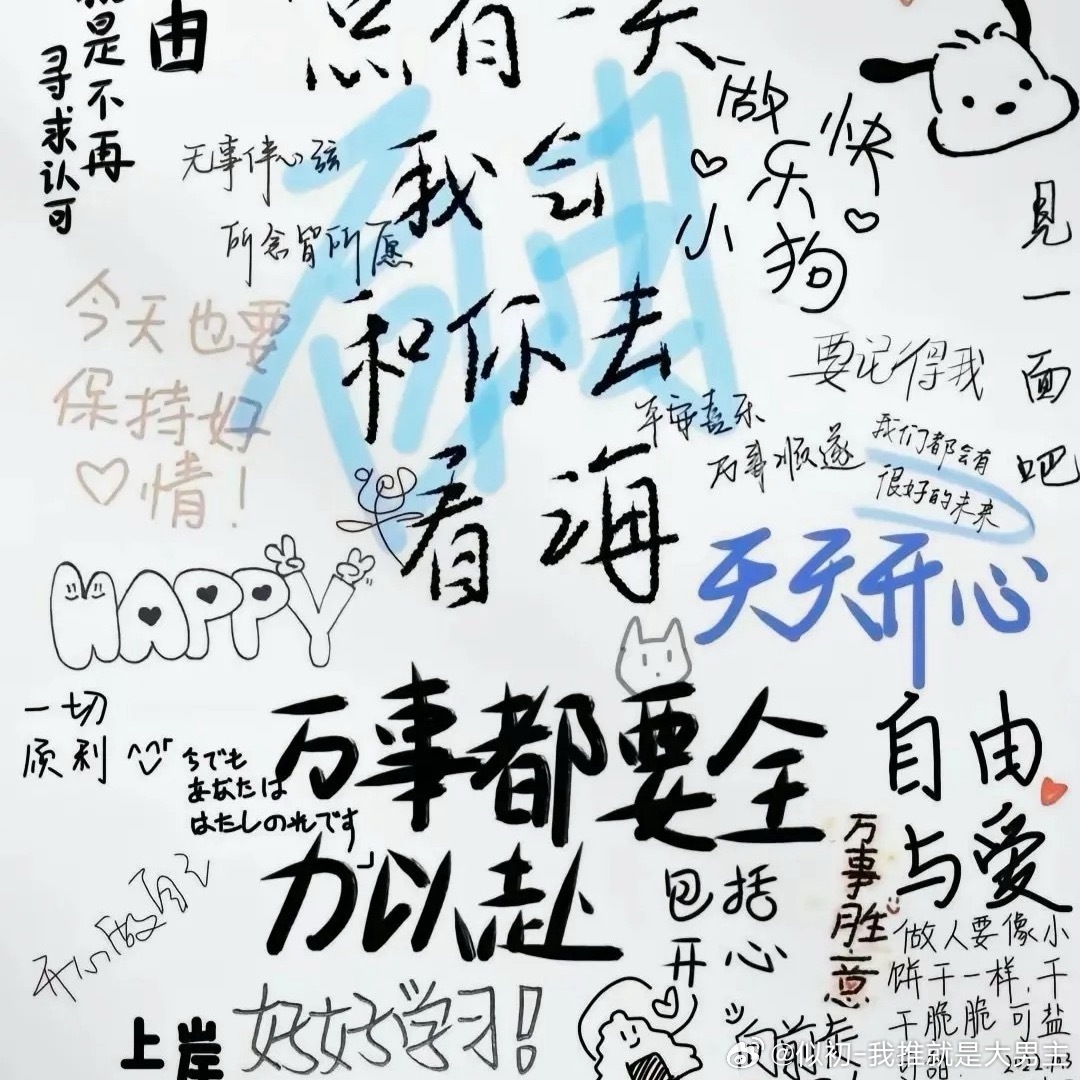 是不再
寻求认可
由
总有一天
我会
和你去
看海
自由
做
快乐
小狗
见一面吧
无事伴心弦
所念皆所愿
今天也要
保持好
情!
要记得我
平安喜乐
万事顺遂
我们都会有
很好的未来
天天开心
HAPPY
一切
顺利
今でも
あなたは
はたしのれです
万事都要全
力以赴
包括
开心
自由
与爱
万事胜意
做人要像小
饼干一样,干
干脆脆可盐
可甜.
开心做自己
上岸
好好学习!
向前走
@似初-我推就是大男主